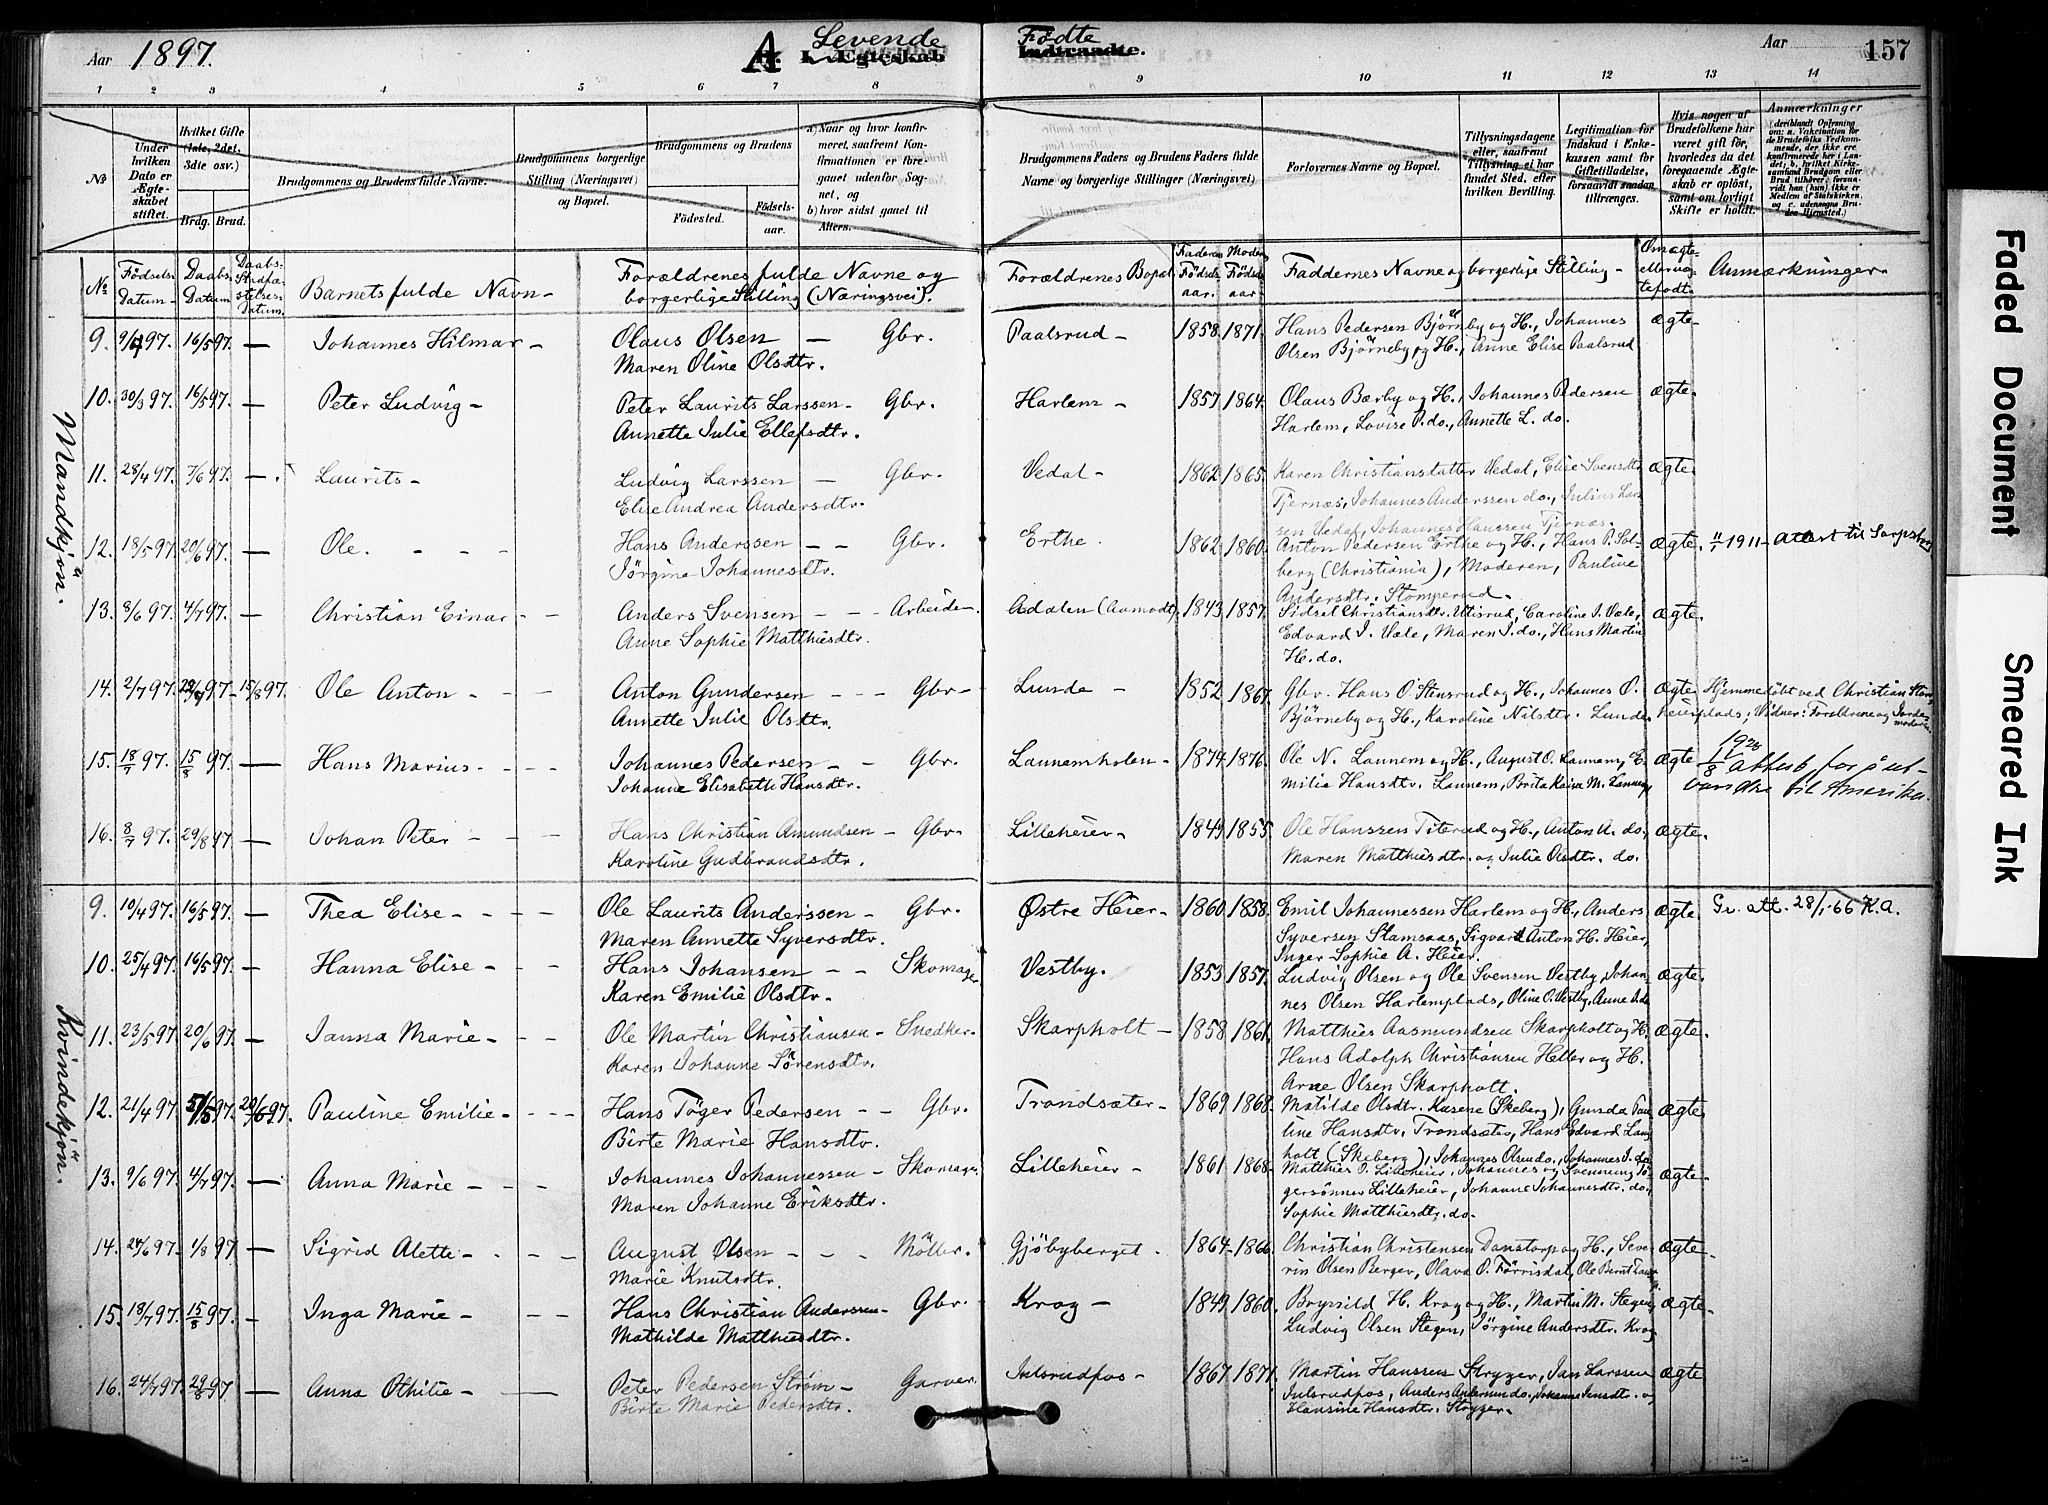 Aar 1897.
A Levende Fødte
H. 1. Ægteskab Indtraadte.
Aar 157
1 2 3 4 5 6 7 8 9 10 11 12 13 14
№
Under hvilken Dato er Ægteskabet stiftet.
Hvilket Gifte (1ste, 2det, 3die osv.)
Brdg. Brud.
Brudgommens og Brudens fulde Navne.
Brudgommens borgerlige Stilling (Næringsvei) og Bopæl.
Brudgommens og Brudens
Fødested. Fødselsaar.
a) Naar og hvor konfirmeret, saafremt Konfirmationen er foregaaet udenfor Sognet, og
b) hvor sidst gaaet til Alters.
Brudgommens Faders og Brudens Faders fulde Navne og borgerlige Stillinger (Næringsvei)
Forlovernes Navne og Bopæl.
Tillysningsdagene eller, saafremt Tillysning ei har fundet Sted, efter hvilken Bevilling.
Legitimation for Indskud i Enkekassen samt for Giftetilladelse, forsaavidt saadan tiltrænges.
Hvis nogen af Brudefolkene har været gift før, hvorledes da det foregaaende Ægteskab er opløst, samt om lovligt Skifte er holdt.
Anmærkninger
№ Fødsels Datum - Daabs Datum Daabs-Stadfæstelses-Datum. Barnets fulde Navn - Forældrenes fulde Navne og borgerlige Stilling (Næringsvei). Forældrenes Bopæl Faderens Fødselsaar. Moderens Fødselsaar Faddernes Navne og borgerlige Stilling - Om ægte eller uægtefødt. Anmærkninger.
Mandkjøn.
9. 9/4 97. 16/5 97. — Johannes Hilmar - Olaus Olsen — Gbr. Paalsrud - 1858. 1871. Hans Pedersen Bjørnby og H., Johannes Ægte.
Maren Oline Olsdtr. Olsen Bjørneby og H., Anne Elise Paalsrud
10. 30/3 97. 16/5 97. — Peter Ludvig - Peter Laurits Larssen - Gbr. Harlem - 1857. 1864. Olaus Bærby og H., Johannes Pedersen Ægte.
Annette Julie Ellefsdtr. Harlem, Lovise P. do., Annette L. do.
11. 28/4 97. 7/6 97. — Laurits - Ludvig Larssen — Gbr. Vedal - 1862. 1865. Karen Christiansdatter Vedal, Elise Svensdtr. Ægte.
Elise Andrea Andersdtr. Tjernæs, Johannes Anderssen do., Julius Lars
sen Vedal, Johannes Hanssen Tjernæs.
12. 18/5 97. 20/6 97. — Ole. - - - Hans Anderssen - - Gbr. Erthe. 1862. 1860. Anton Pedersen Erthe og H., Hans P. Sol- Ægte. 11/1 1911 - Attest til Sarpsborg
Jørgine Johannesdtr. berg (Christiania), Moderen, Pauline
Andersdtr. Stomperud.
13. 8/6 97. 4/7 97. — Christian Einar - - Anders Svensen - - Arbeider. Adalen (Aamodt) 1843. 1857. Sidsel Christiansdtr. Ultisrud, Caroline J. Vale, Ægte.
Anne Sophie Matthisdtr. Edvard J. Vale, Maren J. do., Hans Martin
H. do.
14. 2/7 97. 29/7 97. 15/8 97. Ole Anton - - Anton Gundersen - - - Gbr. Lunde - 1852. 1867. Gbr. Hans O. Stensrud og H., Johannes O. Ægte. Hjemmedøbt ved Christian Stor
Annette Julie Olsdtr. Bjørneby og H., Karoline Nilsdtr. Lunde. heierplads; Vidner: Forældrene og Jorde
moderen.
15. 18/7 97. 15/8 97. — Hans Marius - - - Johannes Pedersen - - Gbr. Lannemholen - 1874. 1876. Ole N. Lannem og H., August O. Lannem, E- Ægte 1928 11/8 attest for å ut-
Johanne Elisabeth Hansdtr. milie Hansdtr. Lannem, Brita Kaisa M. Lannem vandre til Amerika.
16. 8/7 97. 29/8 97. — Johan Peter - - Hans Christian Amundsen - Gbr. Lilleheier - 1849. 1855. Ole Hanssen Titerud og H., Anton A. do. Ægte.
Karoline Gudbrandsdtr. Maren Matthisdtr. og Julie Olsdtr. do.
Kvindekjøn.
9. 10/4 97. 16/5 97. — Thea Elise - - - Ole Laurits Anderssen - Gbr. Østre Heier - 1860. 1858. Emil Johannessen Harlem og H., Anders Ægte. Gr. att. 28/1-66 K.A.
Maren Annette Syversdtr. Syversen Stamsaas, Sigvart Anton H. Heier,
Inger Sophie A. Heier.
10. 25/4 97. 16/5 97. — Hanna Elise - - Hans Johansen - - Skomager Vestby. 1853. 1857. Ludvig Olsen og Ole Svensen Vestby, Johan- Ægte.
Karen Emilie Olsdtr. nes Olsen Harlemplads, Oline O. Vestby, Anne J. do
11. 23/5 97. 20/6 97. — Janna Marie - - - Ole Martin Christiansen - Snedker. Skarpholt - 1858. 1861. Matthies Aasmundsen Skarpholt og H. Ægte.
Karen Johanne Sørensdtr. Hans Adolph Christiansen Heller og H.
Arne Olsen Skarpholt.
12. 21/4 97. 5/5 97. 20/6 97. Pauline Emilie - - - Hans Töger Pedersen - - Gbr. Trondsæter - 1869. 1868. Matilde Olsdtr. Kusene (Skeberg), Gunda Pau- Ægte.
Birte Marie Hansdtr. line Hansdtr. Trondsæter, Hans Edvard Lang
holt (Skeberg), Johannes Olsen do., Johannes J. do
13. 9/6 97. 4/7 97. — Anna Marie - - - Johannes Johannessen - Skomager. Lilleheier - 1861. 1868. Matthies P. Lilleheier, Johannes og Svennung Tö- Ægte.
Maren Johanne Eriksdtr. gersønner Lilleheier, Johanne Johannesdtr. do.,
Sophie Matthiesdtr. do.
14. 24/6 97. 1/8 97. — Sigrid Alette - - - August Olsen - - - Møller. Gjøbyberget. 1864. 1866. Christian Christensen Danstorp og H., Seve- Ægte.
Marie Knutsdtr. rin Olsen Berger, Olava P. Førrisdal, Ole Bernt
15. 18/7 97. 15/8 97. — Inga Marie - - - Hans Christian Anderssen - Gbr. Krog - 1849. 1860. Brynild H. Krog og H., Martin M. Stegen, Ægte.
Mathilde Matthisdtr. Ludvig Olsen Stegen, Jørgine Andersdtr. Krog
16. 24/7 97. 29/8 97 — Anna Othilie - — Peter Pedersen Strøm - Garver. Julsrudfos - 1867. 1871. Martin Hanssen Stryger, Jan Larssen Ægte
Birte Marie Pedersdtr. Julsrudfos, Anders Andersen do., Johanne Jensdtr. og
Hansine Hansdtr. Stryger.
Faded Document
Smeared Ink